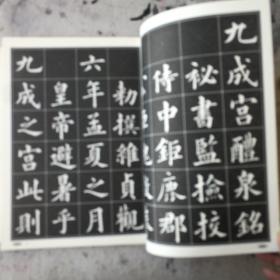 九成宮醴泉銘
祕書監撿挍
侍中鉅鹿郡
勑撰維貞觀
六年孟夏之月
皇帝避暑乎
九成之宮此則